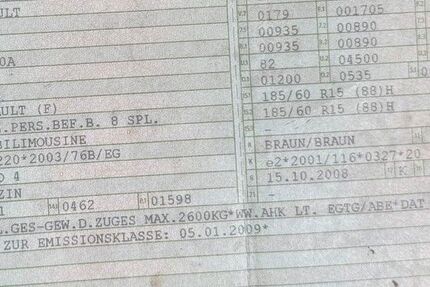 ULT 0179 001705
00935 00890
00935 00890
0A 82 04500
01200 0535
185/60 R15 (88)H
ULT (F) 185/60 R15 (88)H
.PERS.BEF.B. 8 SPL. -
BILIMOUSINE -
220*2003/76B/EG BRAUN/BRAUN
O 4 e2*2001/116*0327*20
ZIN 15.10.2008 K
1 0462 01598 -
.GES-GEW.D.ZUGES MAX.2600KG*WW.AHK LT. EGTG/ABE*DAT
ZUR EMISSIONSKLASSE: 05.01.2009*